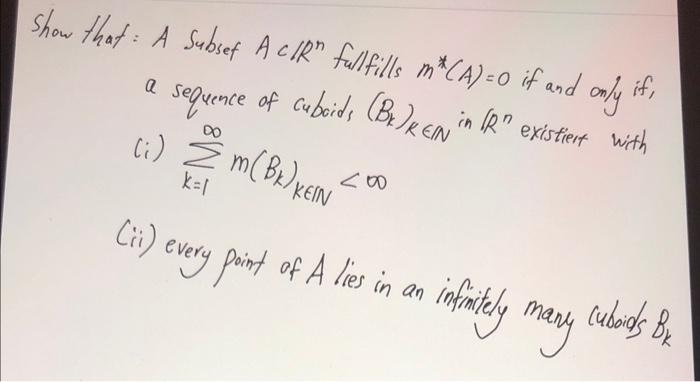 Show that: A Subset A ⊂ ℝⁿ fullfills m*(A)=0 if and only if,
a sequence of cuboids (Bₖ)ₖ∈ℕ in ℝⁿ existiert with
(i) ∞∑k=1 m(Bₖ)ₖ∈ℕ < ∞
(ii) every point of A lies in an infinitely many cuboids Bₖ